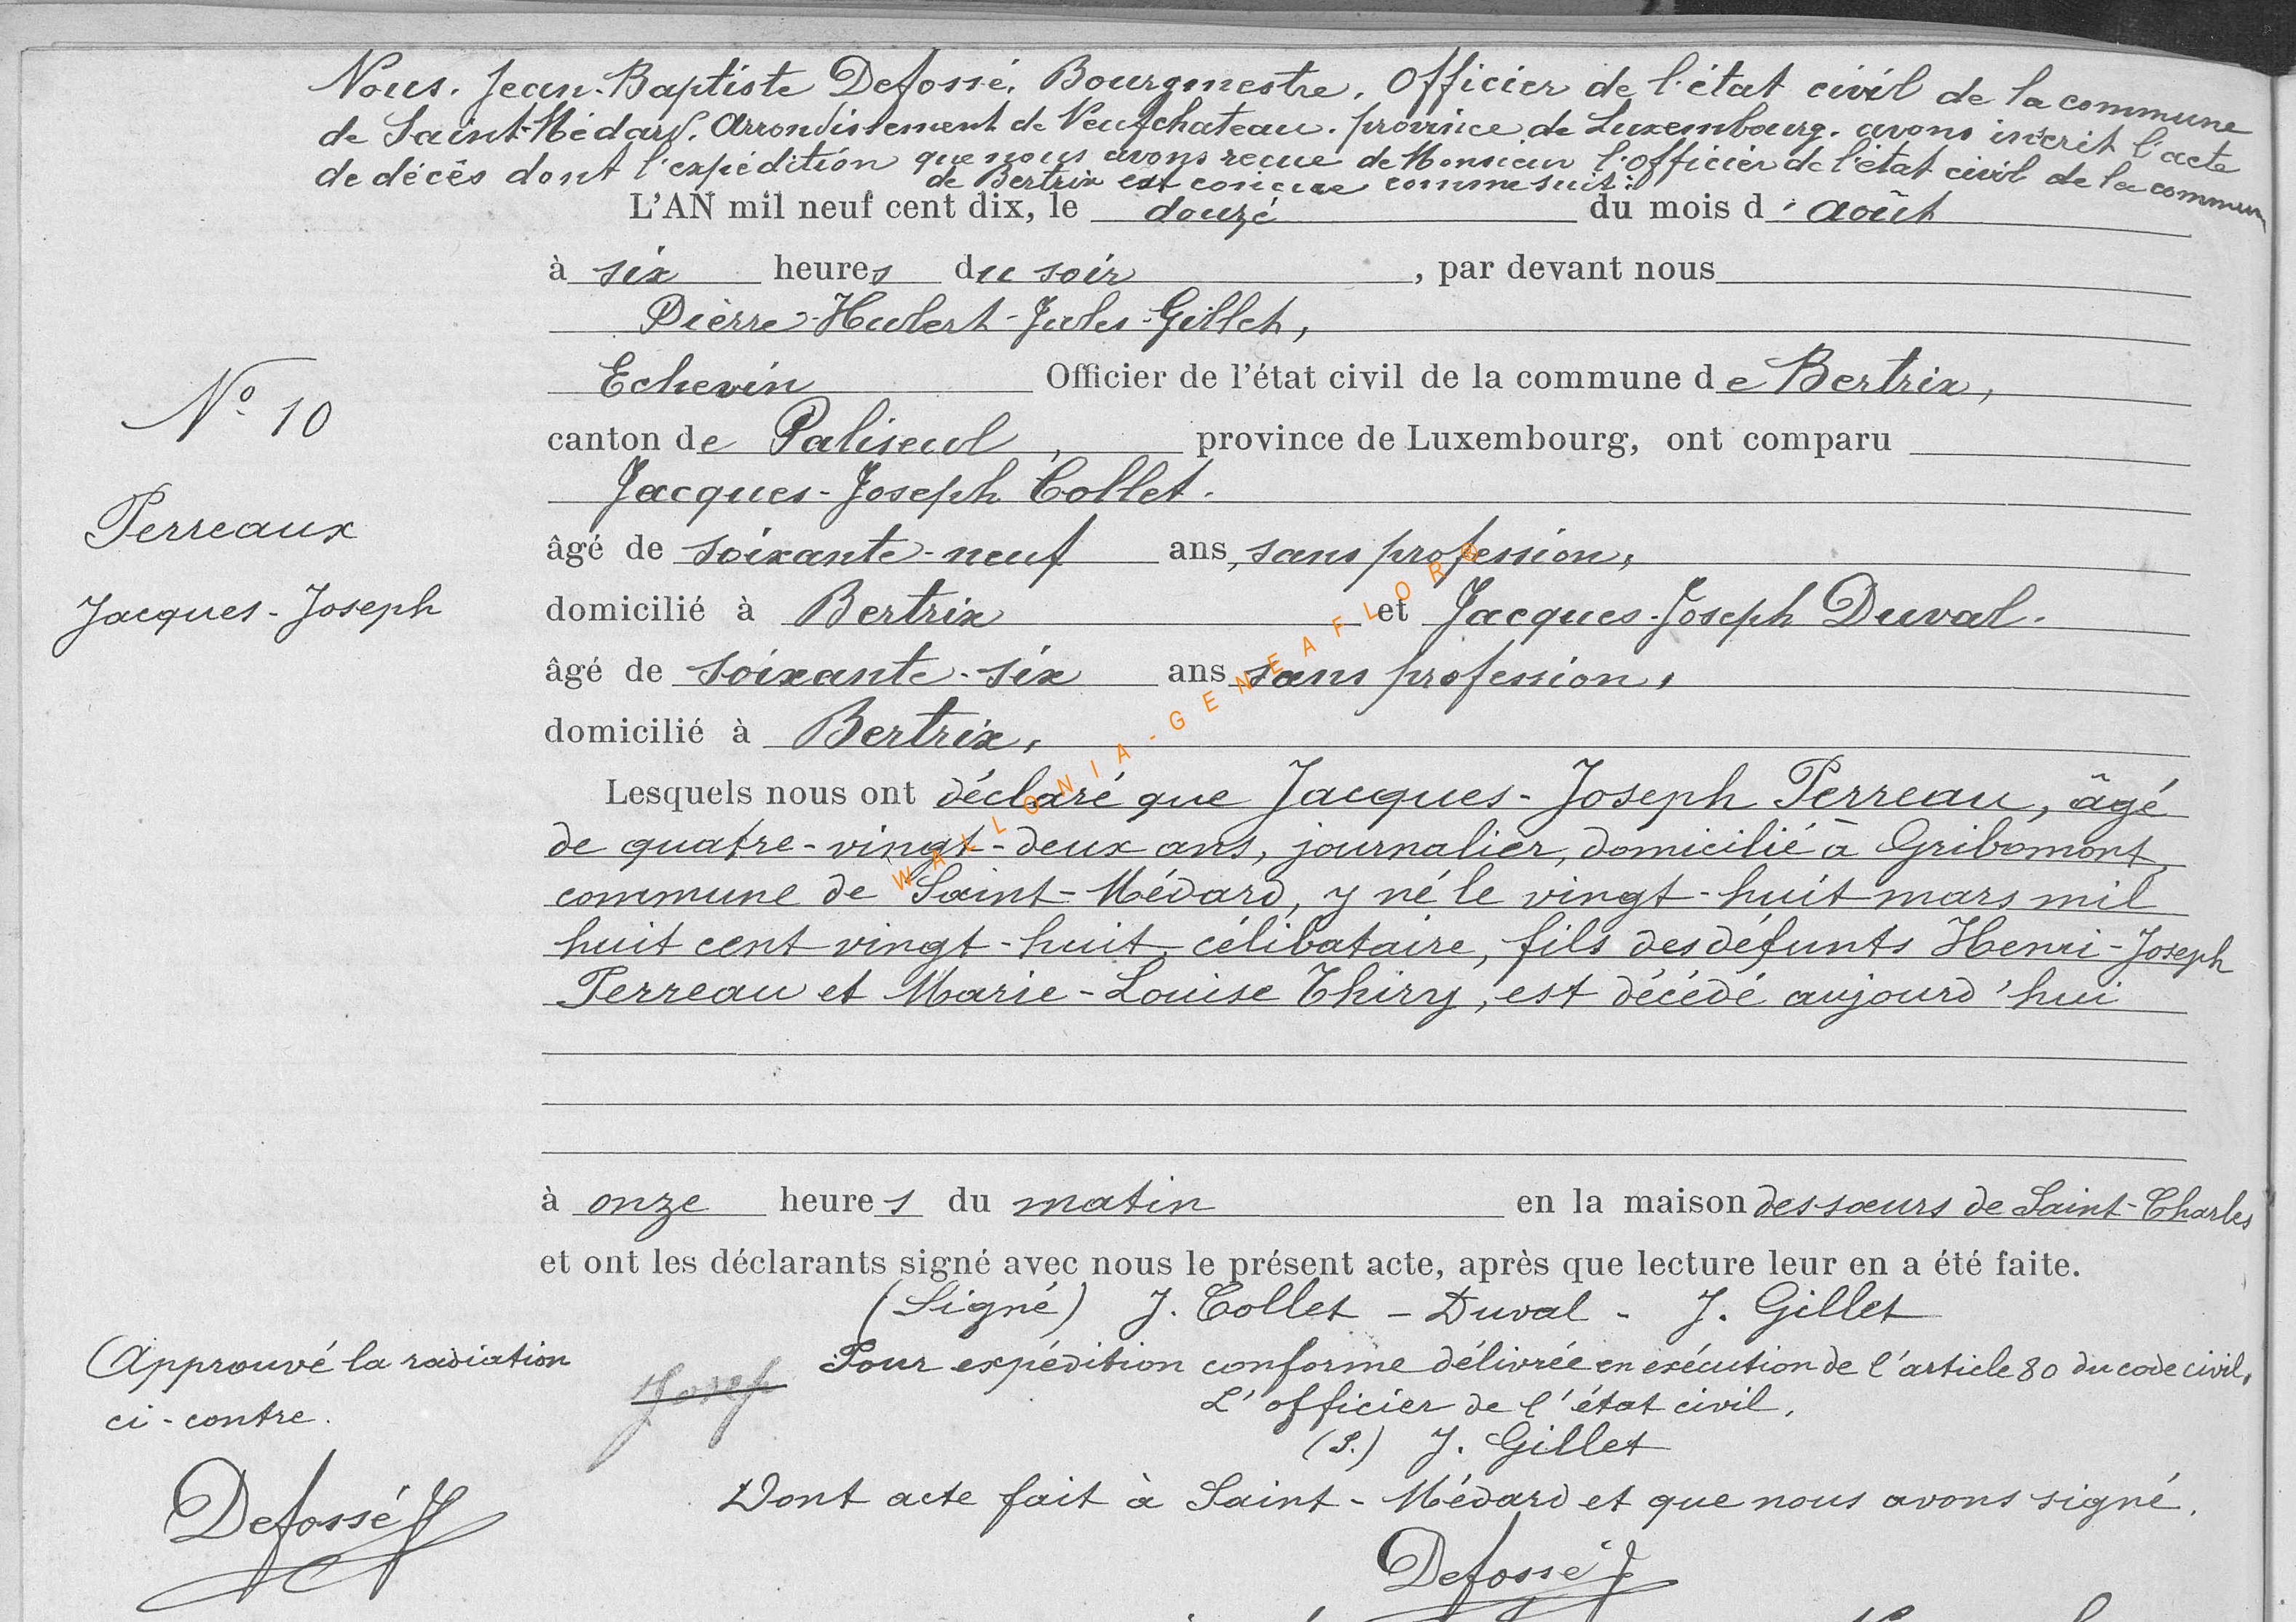 Nous. Jean-Baptiste Defossé, Bourgmestre, Officier de l'état civil de la commune
de Saint-Médard. Arrondissement de Neufchateau. province de Luxembourg. avons inscrit l'acte
de décès dont l'expédition que nous avons recue de Monsieur l'officier de l'état civil de la commune
de Bertrix est concue comme suit:
L'AN mil neuf cent dix, le douze du mois d'août
à six heures du soir, par devant nous
Pierre-Hubert-Jules-Gillet,
Echevin Officier de l'état civil de la commune de Bertrix,
N° 10
canton de Paliseul, province de Luxembourg, ont comparu
Jacques-Joseph Collet.
Perreaux
âgé de soixante-neuf ans, sans profession,
Jacques-Joseph
domicilié à Bertrix et Jacques-Joseph Duval.
âgé de soixante-six ans sans profession,
domicilié à Bertrix,
Lesquels nous ont déclaré que Jacques-Joseph Perreau, âgé
de quatre-vingt-deux ans, journalier, domicilié à Gribomont,
commune de Saint-Médard, y né le vingt-huit mars mil
huit cent vingt-huit, célibataire, fils des défunts Henri-Joseph
Perreau et Marie-Louise Thiry, est décédé aujourd'hui
à onze heures du matin en la maison des sœurs de Saint-Charles
et ont les déclarants signé avec nous le présent acte, après que lecture leur en a été faite.
(Signé) J. Collet - Duval - J. Gillet
Approuvé la radiation
ci-contre.
Defossé J
Josep
Pour expédition conforme délivrée en exécution de l'article 80 du code civil.
L'officier de l'état civil,
(S.) J. Gillet
Dont acte fait à Saint-Médard et que nous avons signé.
Defossé J
WALLONIA-GENEAFLOR®